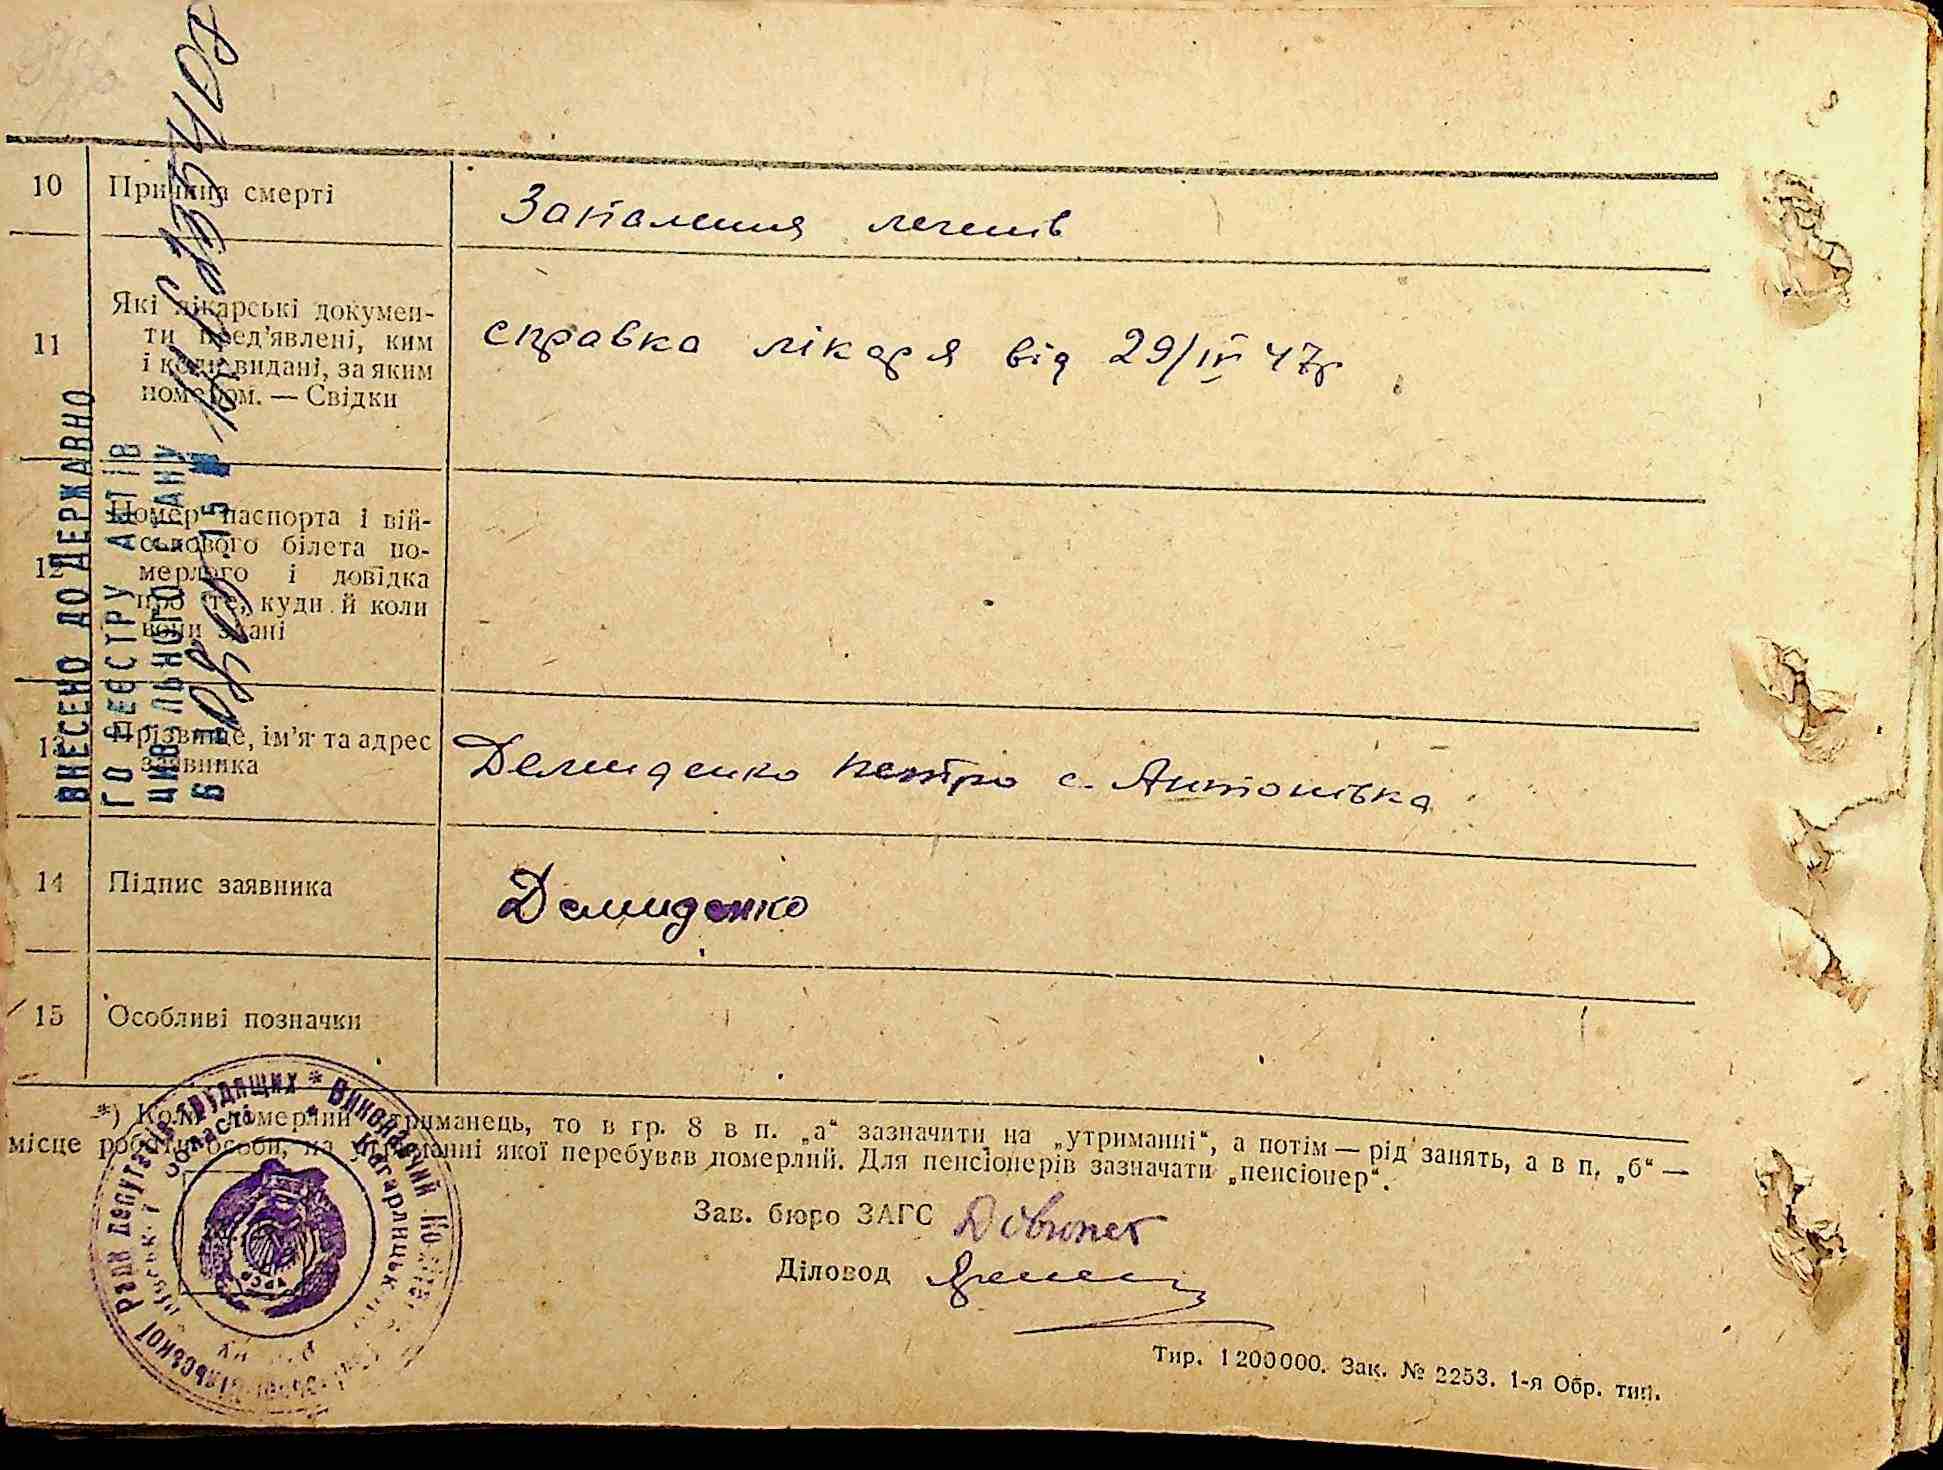 10 Причина смерті
Запалення легенів
11 Які лікарські докумен-
ти пред'явлені, ким
і коли видані, за яким
номером. — Свідки
справка лікаря від 29/IV 47р
12 Номер паспорта і вій-
ськового білета по-
мерлого і довідка
про те, куди й коли
вони здані
13 Прізвище, ім'я та адрес
заявника
Демиденко Петро с. Антонівка
14 Підпис заявника
Демиденко
15 Особливі позначки
*) Коли померлий утриманець, то в гр. 8 в п. „а“ зазначити на „утриманні“, а потім — рід занять, а в п. „б“ —
місце роботи особи, на утриманні якої перебував померлий. Для пенсіонерів зазначати „пенсіонер“.
Зав. бюро ЗАГС
Діловод
Тир. 1 200 000. Зак. № 2253. 1-я Обр. тип.
ВНЕСЕНО ДО ДЕРЖАВНО
ГО РЕЄСТРУ АКТІВ
ЦИВІЛЬНОГО СТАНУ
Виконавчий
Ради депутатів трудящих
області
УРСР